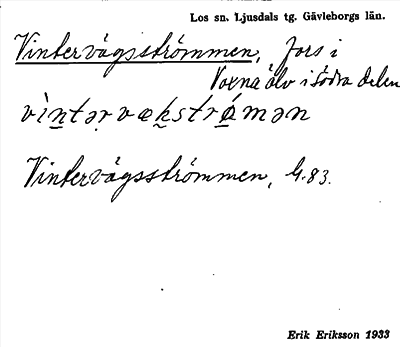 Los sn. Ljusdals tg. Gävleborgs län.
Vintervägsströmmen, fors i
Voxna älv i södra delen
vìntərvækstrǿmən
Vintervägsströmmen, G.83.
Erik Eriksson 1933